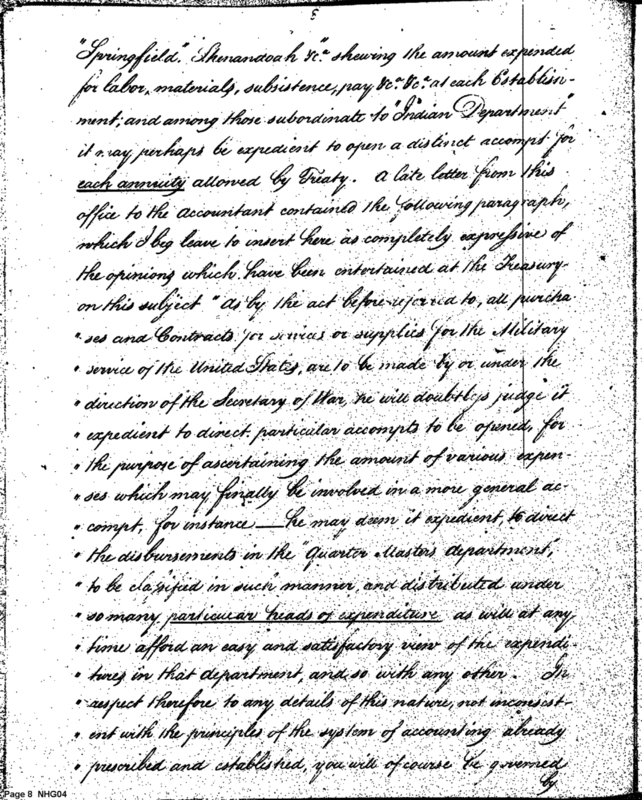 5
"Springfield". Shenandoah &c.ª shewing the amount expended
for labor, materials, subsistence, pay &cª &cª at each Establish-
ment; and among those subordinate to "Indian Department"
it may perhaps be expedient to open a distinct accompt for
each annuity allowed by Treaty. A late letter from this
office to the Accountant contained the following paragraph,
which I beg leave to insert here as completely expressive of
the opinions which have been entertained at the Treasury
on this subject "As by the act before referred to, all purcha-
" ses and Contracts for services or supplies for the Military
" service of the United States, are to be made by or under the
" direction of the Secretary of War, he will doubtless judge it
" expedient to direct particular accompts to be opened, for
" the purpose of ascertaining the amount of various expen-
" ses which may finally be involved in a more general ac-
" compt, for instance — he may deem it expedient, to direct
" the disbursements in the "Quarter Masters department,"
" to be classified in such manner, and distributed under
" so many particular heads of expenditure as will at any
" time afford an easy and satisfactory view of the expendi-
" tures in that department, and so with any other. In
" respect therefore to any details of this nature, not inconsist-
" ent with the principles of the system of accounting already
" prescribed and established, you will of course be governed
by
Page 8 NHG04